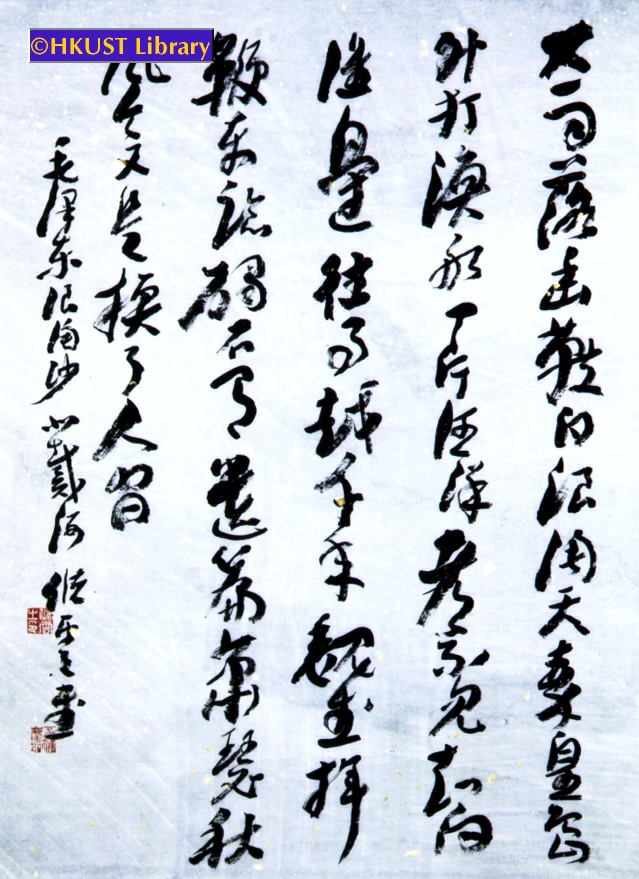 ©HKUST Library
大雨落幽燕白浪滔天秦皇島
外打漁船一片汪洋都不見知向
誰邊往事越千年魏武揮
鞭東臨碣石有遺篇蕭瑟秋
風今又是換了人間
毛澤東浪淘沙北戴河